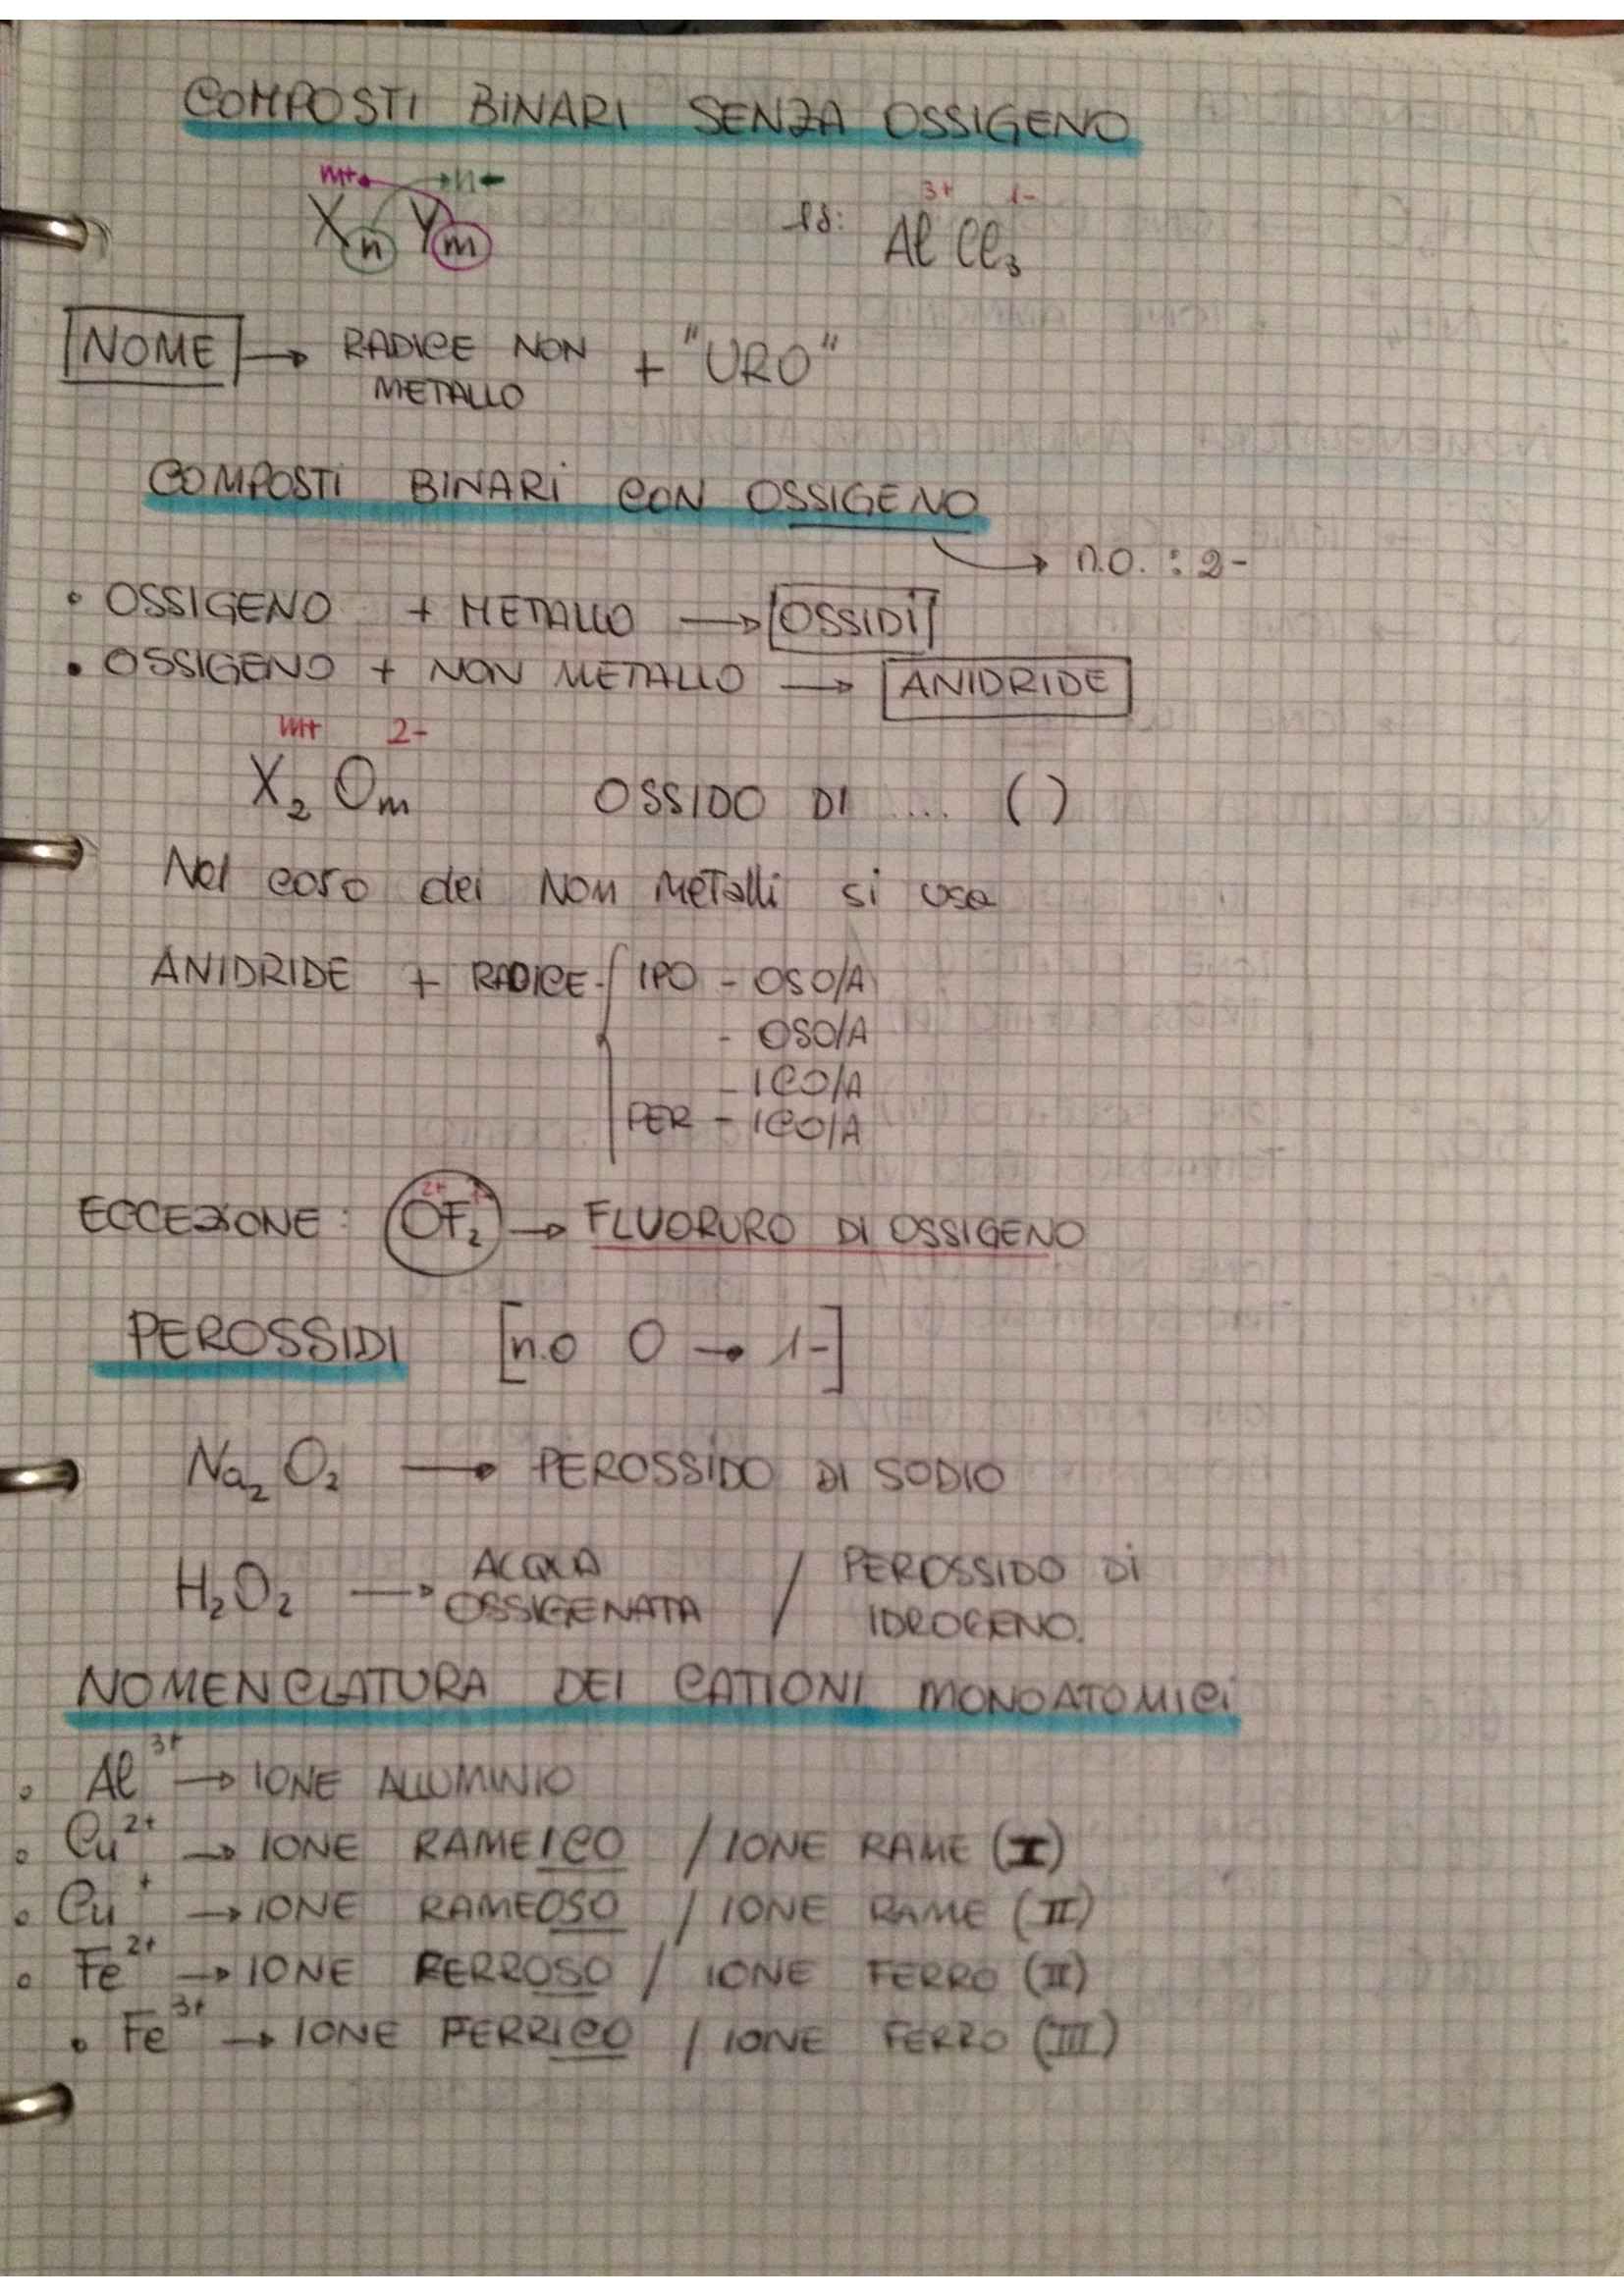 COMPOSTI BINARI SENZA OSSIGENO
m+ n-
Xn Ym es: Al³⁺ Cl₃¹⁻
NOME → RADICE NON METALLO + "URO"
COMPOSTI BINARI CON OSSIGENO
→ n.O. : 2-
• OSSIGENO + METALLO → OSSIDI
• OSSIGENO + NON METALLO → ANIDRIDE
m+ 2-
X₂ Om OSSIDO DI ... ( )
Nel caso dei NON METALLI si usa
ANIDRIDE + RADICE { IPO - OSO/A
- OSO/A
- ICO/A
PER - ICO/A
ECCEZIONE: OF₂ → FLUORURO DI OSSIGENO
PEROSSIDI [n.o O → 1-]
Na₂O₂ → PEROSSIDO DI SODIO
H₂O₂ → ACQUA OSSIGENATA / PEROSSIDO DI IDROGENO.
NOMENCLATURA DEI CATIONI MONOATOMICI
• Al³⁺ → IONE ALLUMINIO
• Cu²⁺ → IONE RAMEICO / IONE RAME (I)
• Cu⁺ → IONE RAMEOSO / IONE RAME (II)
• Fe²⁺ → IONE FERROSO / IONE FERRO (II)
• Fe³⁺ → IONE FERRICO / IONE FERRO (III)